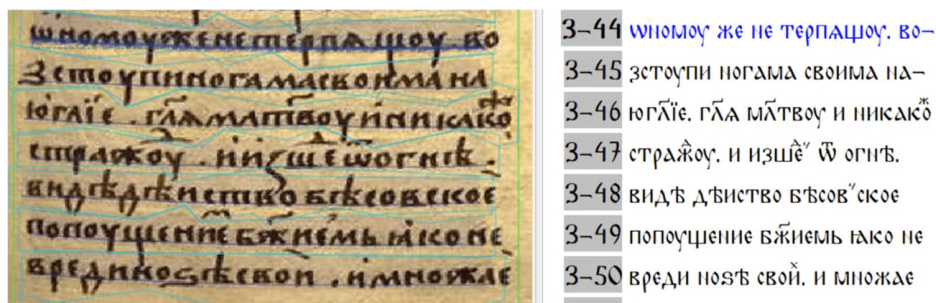 ѡномоуженетерпѧщоу во
зстоупиногамасвоимана
югл҃їе . гл҃ѧмл҃твоуиникакоⷤ
стражⷣоу . иизшеⷣ ѿогнѣ .
видѣдѣиствобѣсовское
попоущениебж҃иемьꙗконе
врединоѕѣсвои . имножае
3-44 ѡномоу же не терпѧщоу. во-
3-45 зстоупи ногама своима на-
3-46 югл҃їе. гл҃ѧ мл҃твоу и никакоⷤ
3-47 стражⷣоу. и изшеⷣ ѿ огнѣ.
3-48 видѣ дѣиство бѣсовⸯское
3-49 попоущение бж҃иемь ꙗко не
3-50 вреди ноѕѣ свои. и множае